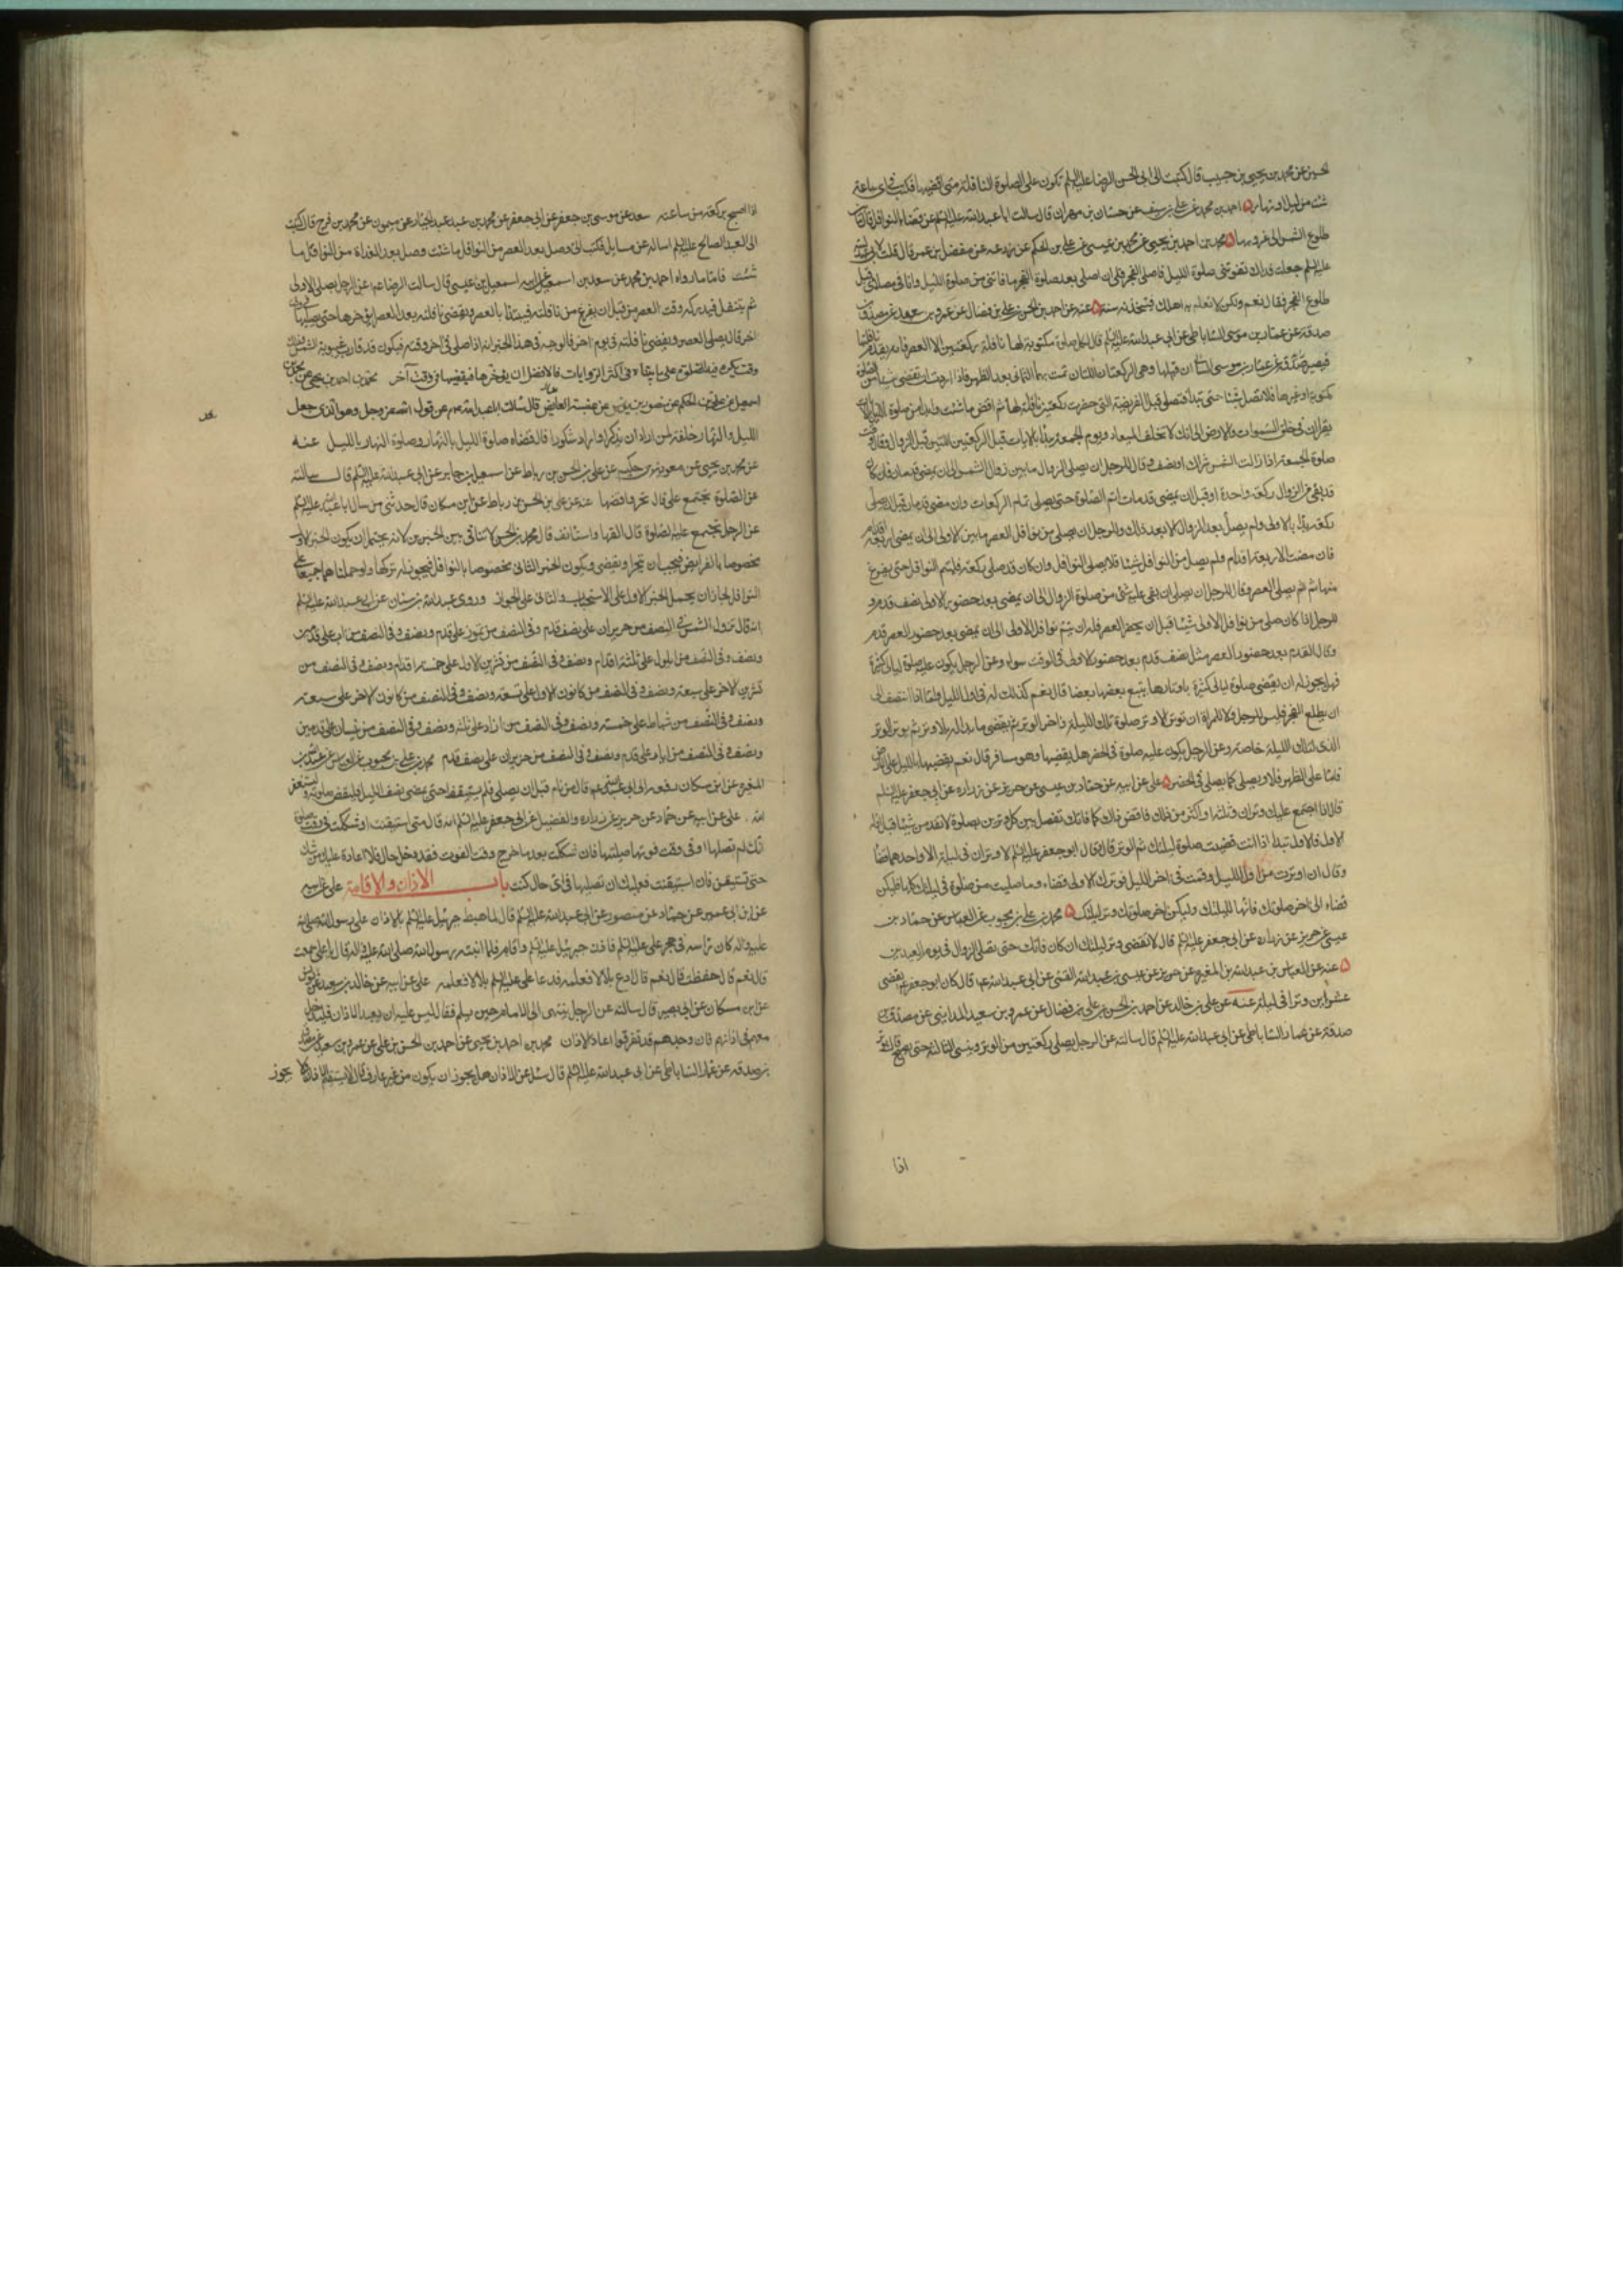 الحسين عن محمد بن يحيى بن حبيب قال كتبت الى ابى الحسن الرضا عليه السلم تكون على الصلوة النافلة متى اقضيها فكتب فى اى ساعة
شئت من ليل او نهار احمد بن محمد عن على بن سيف عن حسان بن مهران قال سالت ابا عبد الله عليه السلم عن قضاء النوافل قال
طلوع الشمس الى غروبها محمد بن احمد بن يحيى عن محمد بن عيسى عن على بن الحكم عن عن مفضل بن عمر قال قلت لابى عبد الله
عليه السلم جعلت فداك تفوتنى صلوة الليل فاصلى الفجر فلى ان اصلى بعد صلوة الفجر ما فاتنى من صلوة الليل وانا فى مصلاى قبل
طلوع الفجر فقال نعم ولكن لا تعلم به اهلك فتتخذنه سنة عنه عن احمد بن الحسن بن على بن فضال عن عمرو بن سعيد عن مصدق بن
صدقة عن عمار بن موسى الساباطى عن ابى عبد الله عليه السلم قال لكل صلوة مكتوبة لها نافلة ركعتين الا العصر فانه يقدم نافلتها
فيصيران قبلها وهى الركعتان اللتان تمت بهما الثمانى بعد الظهر فاذا اردت ان تقضى شيئا من الصلوة
مكتوبة او غيرها فلا تصل شيئا حتى تبدأ فتصلى قبل الفريضة التى حضرت ركعتين نافلة لها ثم اقض ما شئت وابدا من صلوة الليل بالايات
يقرا ان فى خلق السموات والارض الى انك لا تخلف الميعاد ويوم الجمعة تبدأ بالايات قبل الركعتين اللتين قبل الزوال وقال وقت
صلوة الجمعة اذا زالت الشمس شراك او نصف وقال للرجل ان يصلى الزوال ما بين زوال الشمس الى ان يمضى قدمان فان كان
قد بقى من الزوال ركعة واحدة او قبل ان يمضى قدمان اتم الصلوة حتى يصلى تمام الركعات وان مضى قدمان قبل ان يصلى
ركعة بدأ بالاولى ولم يصل بعد الزوال الا بعد ذلك وللرجل ان يصلى من نوافل العصر ما بين الاولى الى ان يمضى اربعة اقدام
فان مضت الاربعة اقدام ولم يصل من النوافل شيئا فلا يصلى النوافل وان كان قد صلى ركعة فليتم النوافل حتى يفرغ
منها ثم يصلى العصر وقال للرجل ان يصلى ان بقى عليه شئ من صلوة الزوال الى ان يمضى بعد حضور الاولى نصف قدم و
للرجل اذا كان صلى من نوافل الاولى شيئا قبل ان يحضر العصر فله ان يتم نوافل الاولى الى ان يمضى بعد حضور العصر قدم
وقال القدم بعد حضور العصر مثل نصف قدم بعد حضور الاولى فى الوقت سواء وعن الرجل يكون عليه صلوة ليال كثيرة
فهل يجوز له ان يقضى صلوة ليالى كثيرة باوتارها يتبع بعضها بعضا قال نعم كذلك له فى اول الليل واما اذا انتصف الى
ان يطلع الفجر فليس للرجل ولا للمراة ان توتر الا وتر صلوة تلك الليلة ثم يقضى ما بدا له بلا وتر ثم يوتر الوتر
الذى لتلك الليلة خاصة وعن الرجل يكون عليه صلوة فى الحضر هل يقضيها وهو مسافر قال نعم يقضيها بالليل على الارض
فاما على الظهر فلا ويصلى كما يصلى فى الحضر على عن ابيه عن حماد بن عيسى عن حريز عن زرارة عن ابى جعفر عليه السلم
قال اذا اجتمع عليك وتران وثلثة او اكثر من ذلك فاقض ذلك كما فاتك تفصل بين كل وترين بصلوة لا تقدمن شيئا قبل اوله
الاول فالاول تبدأ اذا انت قضيت صلوة ليلتك ثم الوتر قال وقال ابو جعفر عليه السلم لا وتران فى ليلة الا واحدهما قضاء
وقال ان اوترت من اول الليل وقمت فى اخر الليل فوترك الاول قضاء وما صليت من صلوة فى ليلتك كلها فليكن
قضاء الى اخر صلوتك فانها لليلتك وليكن اخر صلوتك وتر ليلتك محمد بن على بن محبوب عن العباس عن حماد بن
عيسى عن حريز عن زرارة عن ابى جعفر عليه السلم قال لا تقضى وتر ليلتك ان كان فاتك حتى تصلى الزوال فى يوم العيدين
عنه عن العباس بن عبد الله بن المغيرة عن حريز عن عيسى بن عبد الله القمى عن ابى عبد الله عم قال كان ابو جعفر عم يقضى
عشرين وترا فى ليلة عنه عن على بن خالد عن احمد بن الحسن بن على بن فضال عن عمرو بن سعيد المدائنى عن مصدق بن
صدقة عن عمار الساباطى عن ابى عبد الله عليه السلم قال سالته عن الرجل يصلى ركعتين من الوتر وينسى الثالثة حتى يصبح قال يوتر
اذا
اذا اصبح بركعة من ساعته سعد عن موسى بن جعفر عن ابى جعفر عن محمد بن عبد الجبار عن ميمون عن محمد بن فرج قال كتبت
الى العبد الصالح عليه السلم اساله عن مسايل فكتب الى وصل بعد العصر من النوافل ما شئت وصل بعد الغداة من النوافل ما
شئت فاما ما رواه احمد بن محمد عن سعد بن اسمعيل عن ابيه اسمعيل بن عيسى قال سالت الرضا عم عن الرجل يصلى الاولى
ثم يتنفل فيدركه وقت العصر من قبل ان يفرغ من نافلته فيبتدأ بالعصر ويقضى نافلته بعد العصر او يؤخرها حتى يصليها فى وقت
اخر قال يصلى العصر ويقضى نافلته فى يوم اخر فالوجه فى هذا الخبر انه اذا صلى فى اخر وقته فيكون قد قارب غيبوبة الشمس وذلك
وقت يكره فيه الصلوة على ما بيناه فى اكثر الروايات فالافضل ان يؤخرها فيقضيها فى وقت آخر محمد بن احمد بن يحيى عن محمد بن
اسمعيل عن على بن الحكم عن منصور بن يونس عن عنبسة العابد قال سالت ابا عبد الله عم عن قول الله عز وجل وهو الذى جعل
الليل والنهار خلفة لمن اراد ان يذكر او اراد شكورا قال قضاء صلوة الليل بالنهار وصلوة النهار بالليل عنه
عن محمد بن يحيى عن معوية بن حكيم عن على بن الحسن بن رباط عن اسمعيل بن جابر عن ابى عبد الله عليه السلم قال سالته
عن الصلوة تجتمع على قال تحرها واقضها عنه عن على بن الحسن بن رباط عن ابن مسكان قال حدثنى من سال ابا عبد الله عليه السلم
عن الرجل تجتمع عليه الصلوة قال القها واستانف قال محمد بن الحسن لا تنافى بين الخبرين لانه يحتمل ان يكون الخبر الاول
مخصوصا بالفرايض فيجب ان تحرا ويقضى ويكون الخبر الثانى مخصوصا بالنوافل فيجوز له تركها ولو حملناهما جميعا على
النوافل لجاز ان يحمل الخبر الاول على الاستحباب والثانى على الجواز وروى عبد الله بن سنان عن ابى عبد الله عليه السلم
انه قال تزول الشمس فى النصف من حزيران على نصف قدم وفى النصف من تموز على قدم ونصف وفى النصف من اب على قدمين
ونصف وفى النصف من ايلول على ثلثة اقدام ونصف وفى النصف من تشرين الاول على خمسة اقدام ونصف وفى النصف من
تشرين الاخر على سبعة ونصف وفى النصف من كانون الاول على تسعة ونصف وفى النصف من كانون الاخر على سبعة
ونصف وفى النصف من شباط على خمسة ونصف وفى النصف من اذار على ثلثة ونصف وفى النصف من نيسان على قدمين
ونصف وفى النصف من ايار على قدم ونصف وفى النصف من حزيران على نصف قدم محمد بن على بن محبوب عن العباس عن عبد الله بن
المغيرة عن ابن مسكان رفعه الى ابى عبد الله عم قال من نام قبل ان يصلى فلم يستيقظ حتى يمضى نصف الليل فليقض صلوته وليستغفر
الله على عن ابيه عن حماد عن حريز عن زرارة والفضيل عن ابى جعفر عليه السلم انه قال متى استيقنت او شككت فى وقت صلوة
انك لم تصلها او فى وقت فوتها صليتها فان شككت بعد ما خرج وقت الفوت فقد دخل حايل فلا اعادة عليك من شك
حتى تستيقن فان استيقنت فعليك ان تصليها فى اى حال كنت باب الاذان والاقامة على عن ابيه
عن ابن ابى عمير عن حماد عن منصور عن ابى عبد الله عليه السلم قال لما هبط جبرئيل عليه السلم بالاذان على رسول الله صلى الله
عليه واله كان راسه فى حجر على عليه السلم فاذن جبرئيل عليه السلم واقام فلما انتبه رسول الله صلى الله عليه واله قال يا على سمعت
قال نعم قال حفظت قال نعم قال ادع بلالا فعلمه فدعا على عليه السلم بلالا فعلمه على عن ابيه عن خالد بن سعيد عن يونس
عن ابن مسكان عن ابى بصير قال سالته عن الرجل ينتهى الى الامام حين يسلم فقال ليس عليه ان يعيد الاذان فليدخل
معهم فى اذانهم فان وجدهم قد تفرقوا اعاد الاذان محمد بن احمد بن يحيى عن احمد بن الحسن بن على عن عمرو بن سعيد عن مصدق
بن صدقه عن عمار الساباطى عن ابى عبد الله عليه السلم قال سئل عن الاذان هل يجوز ان يكون من غير عارف قال لا يستقيم الاذان ولا يجوز